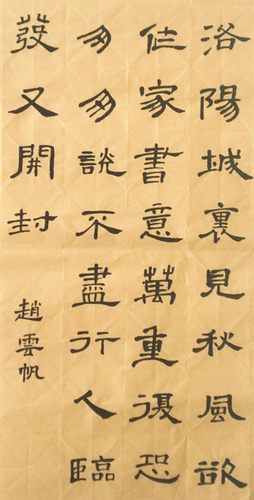 洛陽城裏見秋風欲
作家書意萬重復恐
匆匆說不盡行人臨
發又開封
趙雲帆